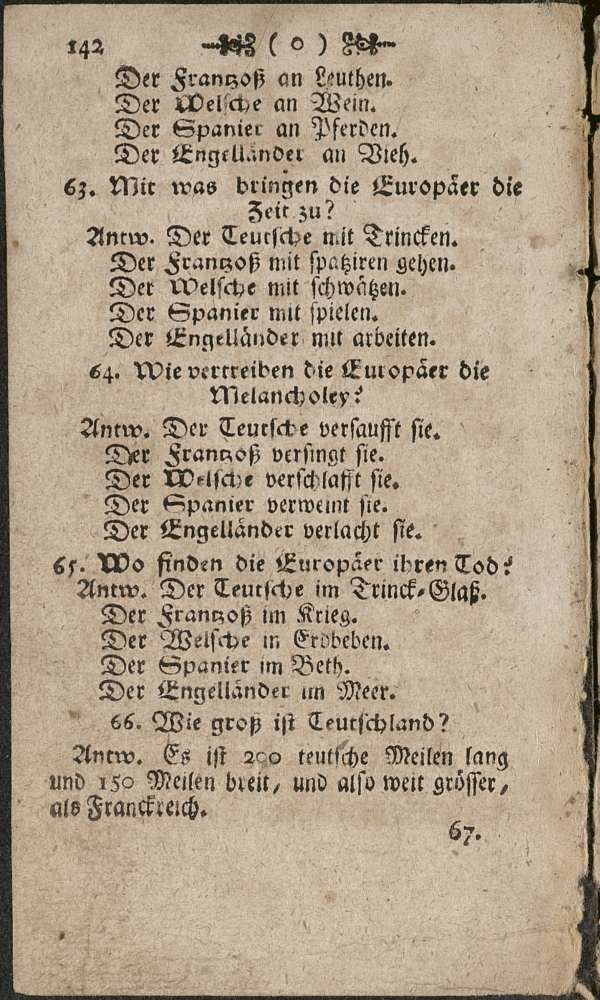 142 ( o )
Der Frantzoß an Leuthen.
Der Welsche an Wein.
Der Spanier an Pferden.
Der Engelländer an Vieh.
63. Mit was bringen die Europäer die
Zeit zu?
Antw. Der Teutsche mit Trincken.
Der Frantzoß mit spatziren gehen.
Der Welsche mit schwätzen.
Der Spanier mit spielen.
Der Engelländer mit arbeiten.
64. Wie vertreiben die Europäer die
Melancholey?
Antw. Der Teutsche versaufft sie.
Der Frantzoß versingt sie.
Der Welsche verschlafft sie.
Der Spanier verweint sie.
Der Engelländer verlacht sie.
65. Wo finden die Europäer ihren Tod?
Antw. Der Teutsche im Trinck-Glaß.
Der Frantzoß im Krieg.
Der Welsche in Erdbeben.
Der Spanier im Beth.
Der Engelländer im Meer.
66. Wie groß ist Teutschland?
Antw. Es ist 200 teutsche Meilen lang
und 150 Meilen breit, und also weit grösser,
als Franckreich.
67.